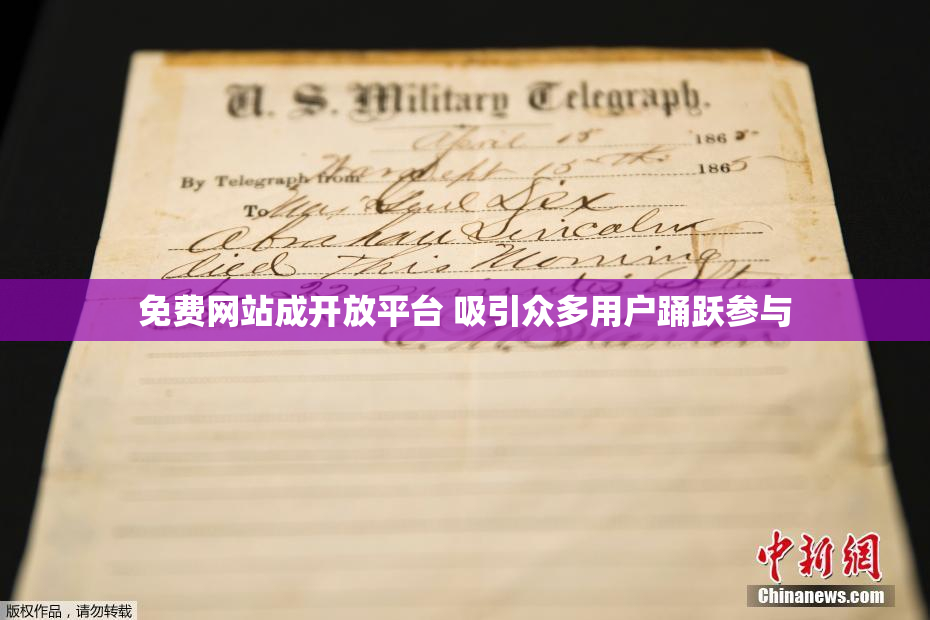 U. S. Military Telegraph.
April 15 1865
By Telegraph from War Dept 15th 1865
To Maj Genl Dix
Abraham Lincoln
died This Morning
at 22 minutes after
免费网站成开放平台 吸引众多用户踊跃参与
E. M. Stanton
中新网
Chinanews.com
版权作品，请勿转载